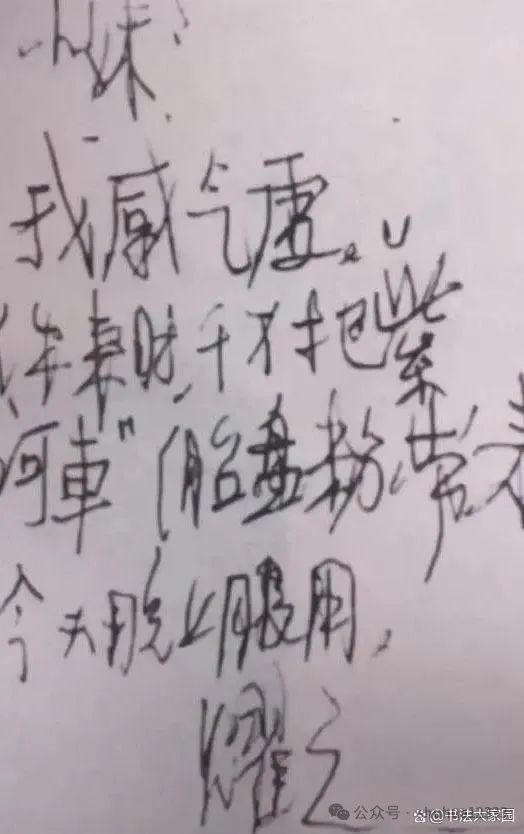 小妹:
我感气虚。
你来时,千万把“紫
河車”(胎盘粉)带来
今天晚上服用,
耀之
公众号·
@书法大家园